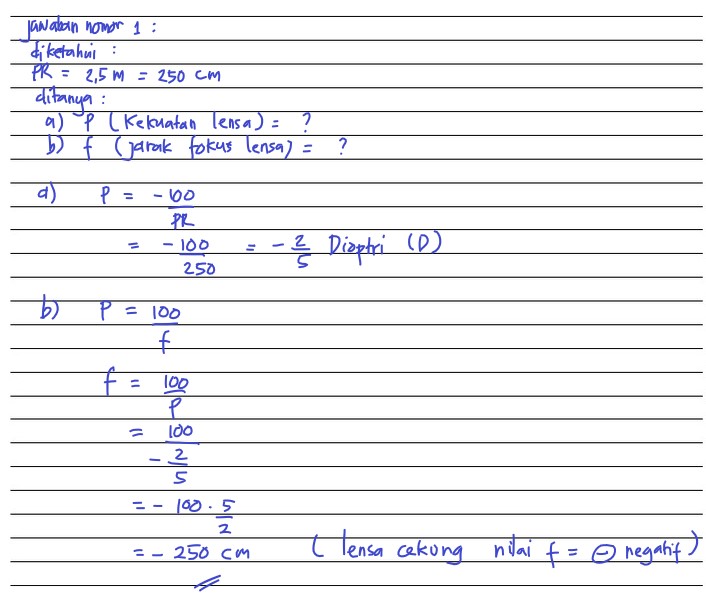 jawaban nomor 1 :
diketahui :
PR = 2,5 m = 250 cm
ditanya :
a) P (Kekuatan lensa) = ?
b) f (jarak fokus lensa) = ?
a) P = -100/PR
= -100/250 = -2/5 Dioptri (D)
b) P = 100/f
f = 100/P
= 100/-2/5
= - 100 . 5/2
= - 250 cm ( lensa cekung nilai f = ⊖ negatif )